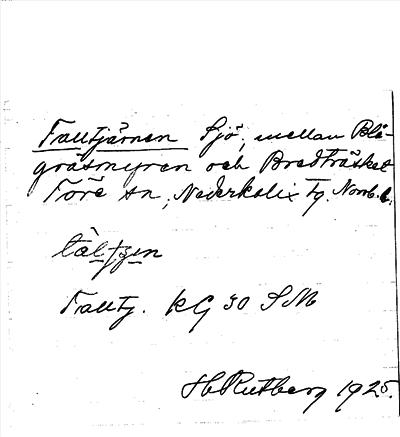 Talltjärnen Sjö, mellan Blå-
gräsmyren och Bredträsket
Töre sn, Nederkalix tg. Norrb. l.
Talltj. KG 30 SM
H Rutberg 1925.